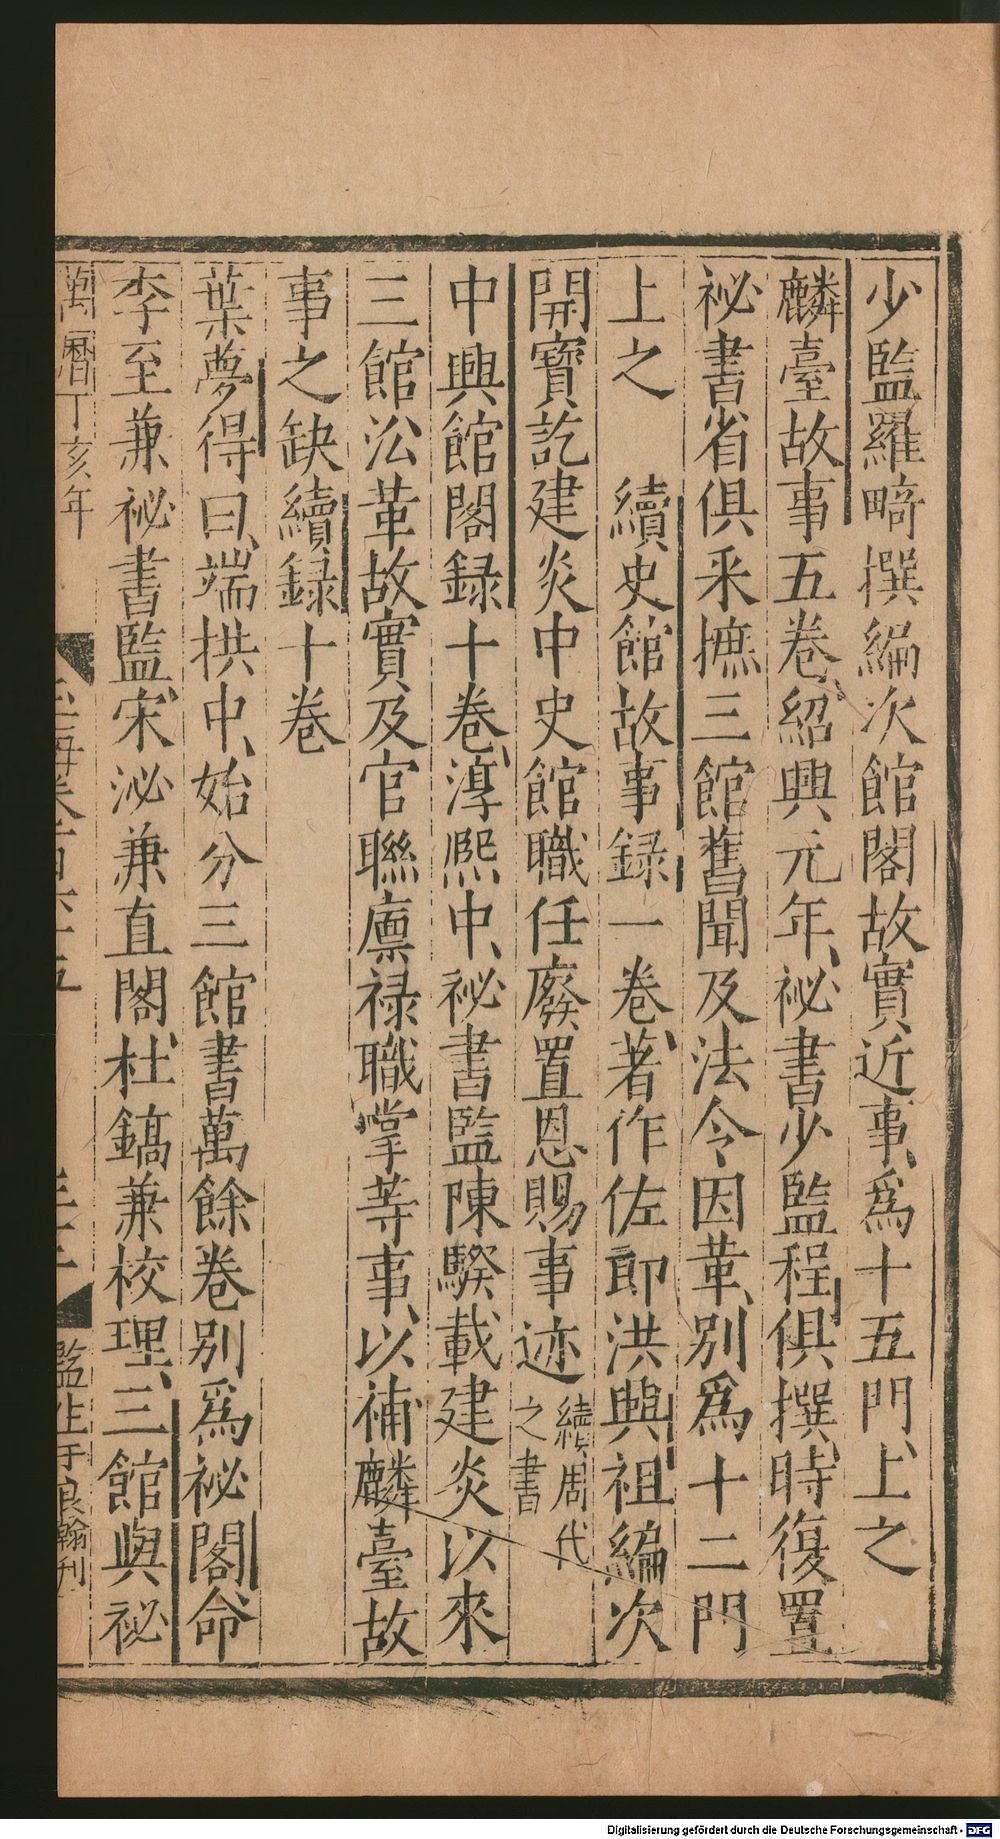 少監羅畸撰編次館閣故實近事、爲十五門、上之
麟臺故事五卷、紹興元年、祕書少監程俱撰、時復置
祕書省俱采摭三館舊聞及法令因革、別爲十二門
上之　續史館故事錄一卷、著作佐郎洪興祖編次
開寶訖建炎中史館職任廢置恩賜事迹續周代之書
中興館閣錄十卷、淳熙中、祕書監陳騤載建炎以來
三館沿革故實及官聯廩祿職掌等事、以補麟臺故
事之缺續錄十卷
葉夢得曰、端拱中、始分三館書萬餘卷別爲祕閣、命
李至兼祕書監、宋泌兼直閣、杜鎬兼校理、三館與祕
萬曆丁亥年
監生于良翰刊
Digitalisierung gefördert durch die Deutsche Forschungsgemeinschaft - DFG